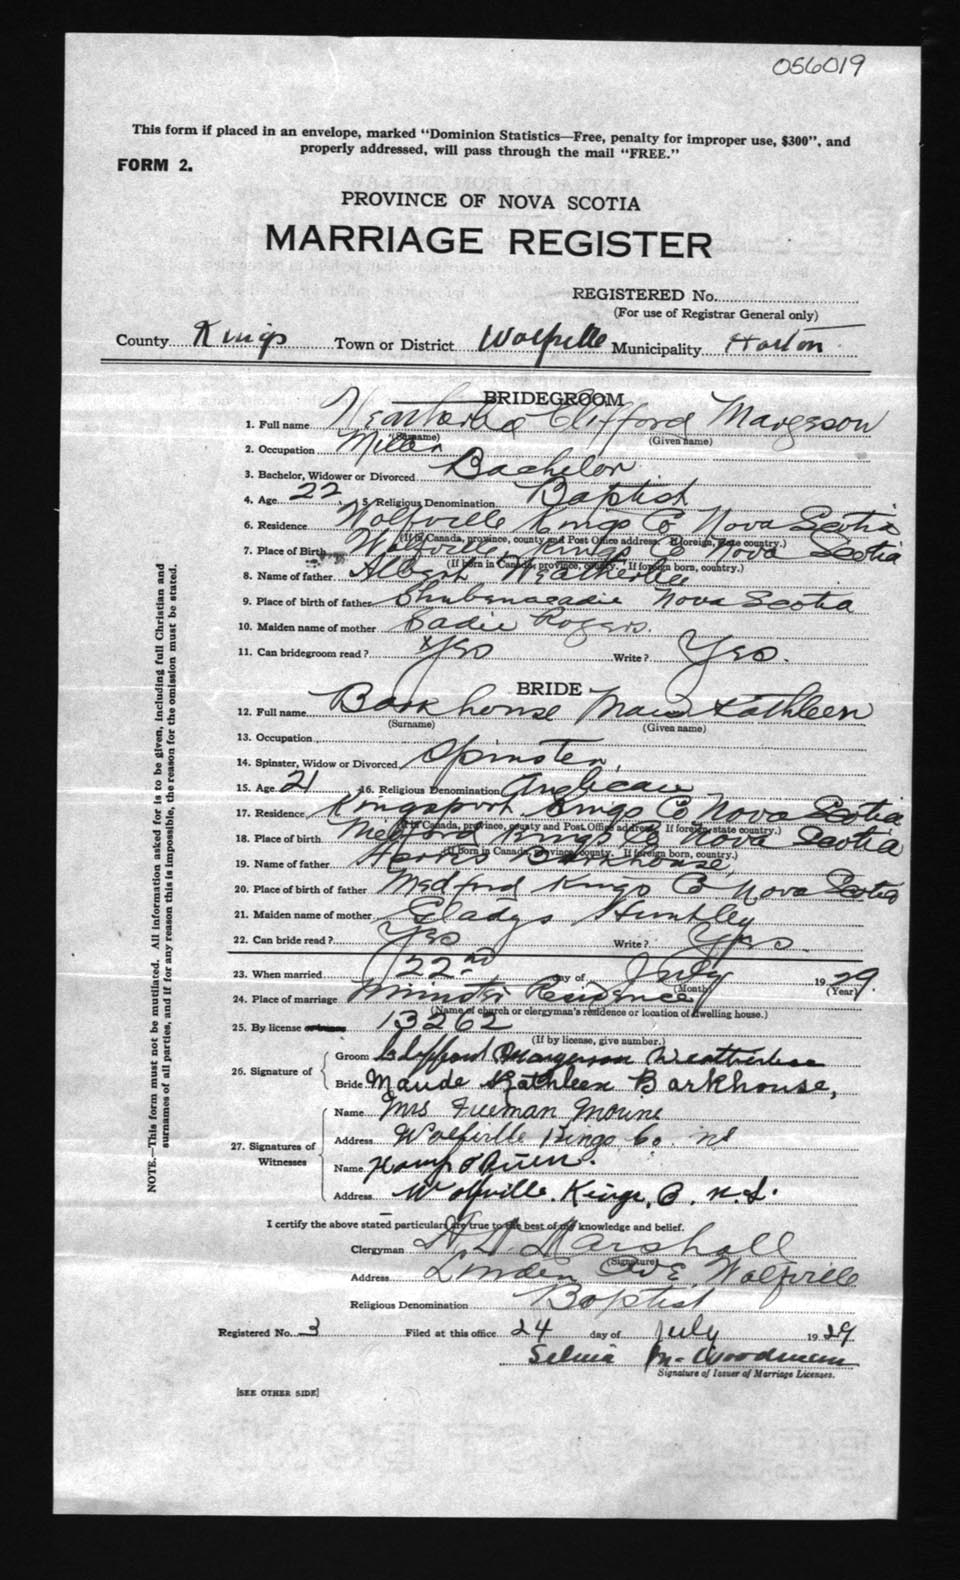 056019
This form if placed in an envelope, marked "Dominion Statistics—Free, penalty for improper use, $300", and
properly addressed, will pass through the mail "FREE."
FORM 2.
PROVINCE OF NOVA SCOTIA
MARRIAGE REGISTER
REGISTERED No.
(For use of Registrar General only)
County Kings Town or District Wolfville Municipality Horton
BRIDEGROOM
1. Full name Weatherbee Clifford Margeson
(Surname) (Given name)
2. Occupation Miller
3. Bachelor, Widower or Divorced Bachelor
4. Age 22 5. Religious Denomination Baptist
6. Residence Wolfville Kings Co Nova Scotia
(If in Canada, province, county and Post Office address. If foreign, state country.)
7. Place of Birth Wolfville Kings Co Nova Scotia
(If born in Canada, province, county. If foreign born, country.)
8. Name of father Albert Weatherbee
9. Place of birth of father Shubenacadie Nova Scotia
10. Maiden name of mother Sadie Rogers.
11. Can bridegroom read? Yes Write? Yes.
BRIDE
12. Full name Barkhouse Maud Kathleen
(Surname) (Given name)
13. Occupation
14. Spinster, Widow or Divorced Spinster
15. Age 21 16. Religious Denomination Anglican
17. Residence Kingsport Kings Co Nova Scotia
(If in Canada, province, county and Post Office address. If foreign, state country.)
18. Place of birth Medford Kings Co Nova Scotia
(If born in Canada, province, county. If foreign born, country.)
19. Name of father Barkhouse
20. Place of birth of father Medford Kings Co Nova Scotia
21. Maiden name of mother Gladys Huntley
22. Can bride read? Yes Write? Yes.
23. When married 22nd day of July 1929.
(Month) (Year)
24. Place of marriage Minister Residence
(Name of church or clergyman's residence or location of dwelling house.)
25. By license 13262
(If by license, give number.)
26. Signature of
Groom Clifford Margeson Weatherbee
Bride Maude Kathleen Barkhouse,
27. Signatures of
Witnesses
Name Mrs Freeman
Address Wolfville Kings Co. NS
Name O'Brien.
Address Wolfville. Kings, Co. N.S.
I certify the above stated particulars are true to the best of my knowledge and belief.
Clergyman Marshall
(Signature)
Address Linden Ave, Wolfville
Religious Denomination Baptist
Registered No. 3 Filed at this office 24 day of July 1929
M. Woodman
Signature of Issuer of Marriage Licenses.
[SEE OTHER SIDE]
NOTE.—This form must not be mutilated. All information asked for is to be given, including full Christian and
surnames of all parties, and if for any reason this is impossible, the reason for the omission must be stated.